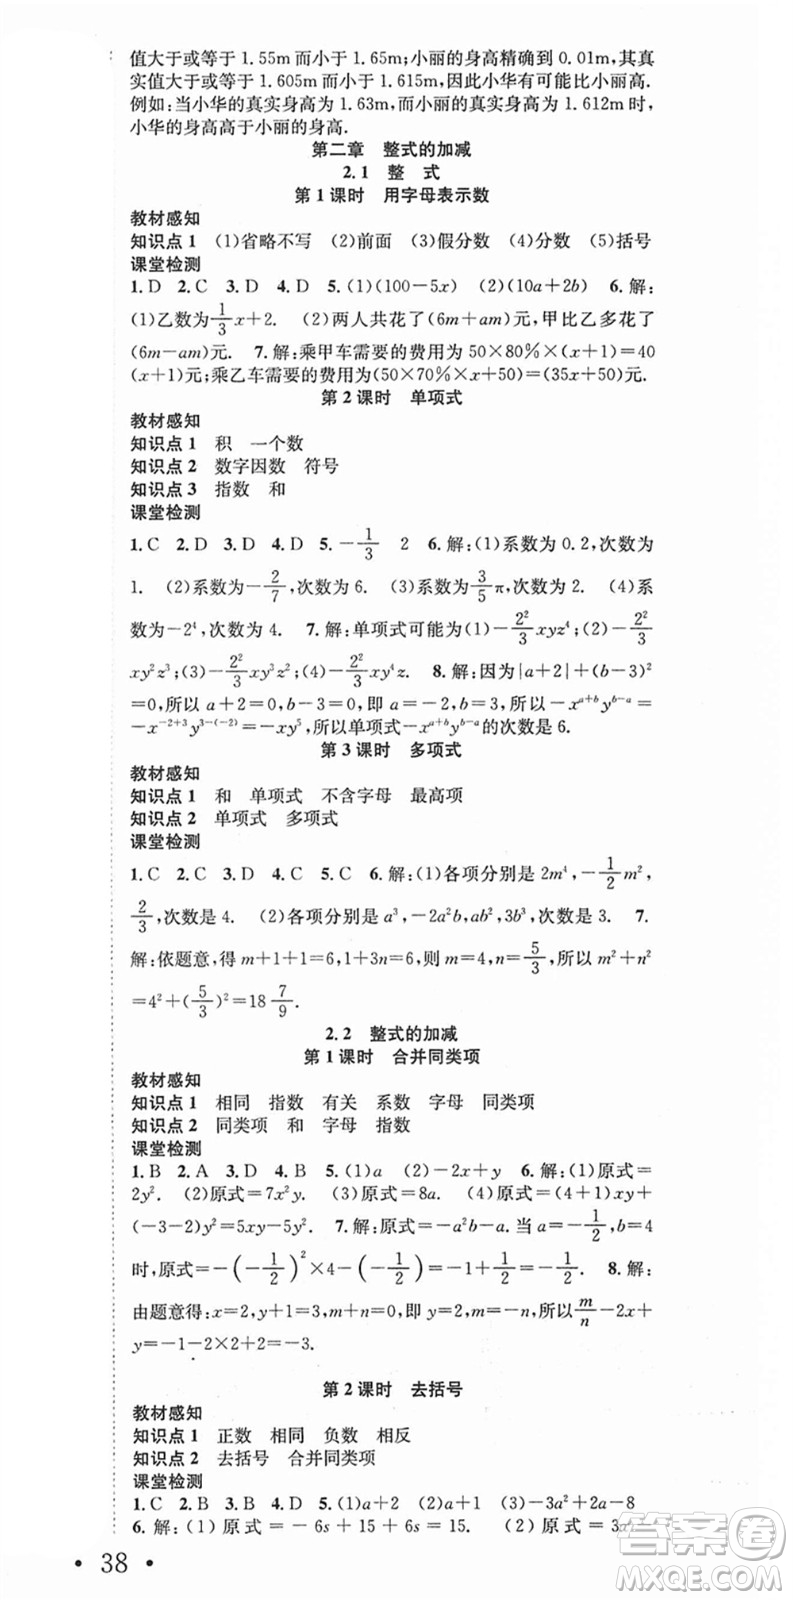 值大于或等于 1.55m 而小于 1.65m;小丽的身高精确到 0.01m,其真
实值大于或等于 1.605m 而小于 1.615m,因此小华有可能比小丽高.
例如:当小华的真实身高为 1.63m,而小丽的真实身高为 1.612m时,
小华的身高高于小丽的身高.
第二章 整式的加减
2.1 整 式
第 1 课时 用字母表示数
教材感知
知识点 1 (1)省略不写 (2)前面 (3)假分数 (4)分数 (5)括号
课堂检测
1.D 2.C 3.D 4.D 5.(1)(100-5x) (2)(10a+2b) 6.解:
(1)乙数为1/3x+2. (2)两人共花了(6m+am)元,甲比乙多花了
(6m-am)元. 7.解:乘甲车需要的费用为 50×80%×(x+1)=40
(x+1)元;乘乙车需要的费用为(50×70%×x+50)=(35x+50)元.
第 2 课时 单项式
教材感知
知识点 1 积 一个数
知识点 2 数字因数 符号
知识点 3 指数 和
课堂检测
1.C 2.D 3.D 4.D 5.-1/3 2 6.解:(1)系数为 0.2,次数为
1. (2)系数为-2/7,次数为 6. (3)系数为3/5π,次数为 2. (4)系
数为-2⁴,次数为 4. 7.解:单项式可能为(1)-2²/3xyz⁴;(2)-2²/3
xy²z³;(3)-2²/3xy³z²;(4)-2²/3xy⁴z. 8.解:因为|a+2|+(b-3)²
=0,所以 a+2=0,b-3=0,即 a=-2,b=3,所以-x^(a+b)y^(b-a)=
-x^(-2+3)y^(3-(-2))=-xy⁵,所以单项式-x^(a+b)y^(b-a)的次数是 6.
第 3 课时 多项式
教材感知
知识点 1 和 单项式 不含字母 最高项
知识点 2 单项式 多项式
课堂检测
1.C 2.D 3.D 4.C 5.C 6.解:(1)各项分别是 2m⁴,-1/2m²,
2/3,次数是 4. (2)各项分别是 a³,-2a²b,ab²,3b³,次数是 3. 7.
解:依题意,得 m+1+1=6,1+3n=6,则 m=4,n=5/3,所以 m²+n²
=4²+(5/3)²=18 7/9.
2.2 整式的加减
第 1 课时 合并同类项
教材感知
知识点 1 相同 指数 有关 系数 字母 同类项
知识点 2 同类项 和 字母 指数
课堂检测
1.B 2.A 3.D 4.B 5.(1)a (2)-2x+y 6.解:(1)原式=
2y². (2)原式=7x²y. (3)原式=8a. (4)原式=(4+1)xy+
(-3-2)y²=5xy-5y². 7.解:原式=-a²b-a.当 a=-1/2,b=4
时,原式=-(-1/2)²×4-(-1/2)=-1+1/2=-1/2. 8.解:
由题意得:x=2,y+1=3,m+n=0,即 y=2,m=-n,所以m/n-2x+
y=-1-2×2+2=-3.
第 2 课时 去括号
教材感知
知识点 1 正数 相同 负数 相反
知识点 2 去括号 合并同类项
课堂检测
1.C 2.B 3.B 4.C 5.(1)a+2 (2)a+1 (3)-3a²+2a-8
6.解:(1)原式=-6s+15+6s=15. (2)原式=3x
答案圈
MXQE.COM
• 38 •